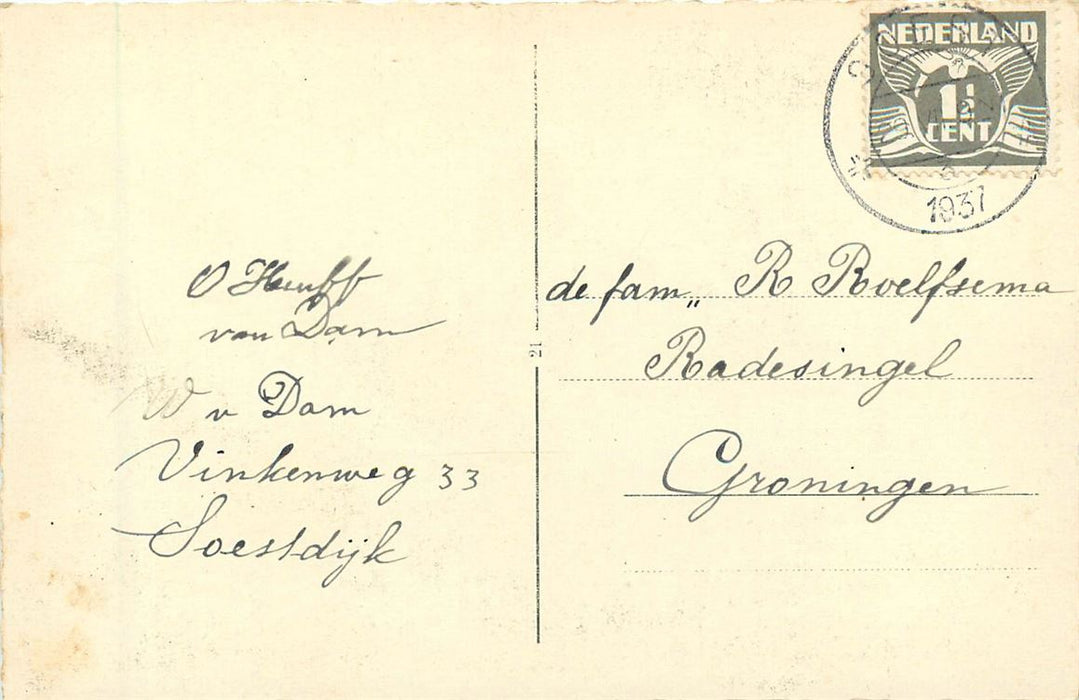 NEDERLAND
1½
CENT
1937
O Heuff
van Dam
W v Dam
Vinkenweg 33
Soestdijk
21
de fam„ R Roelfsema
Radesingel
Groningen